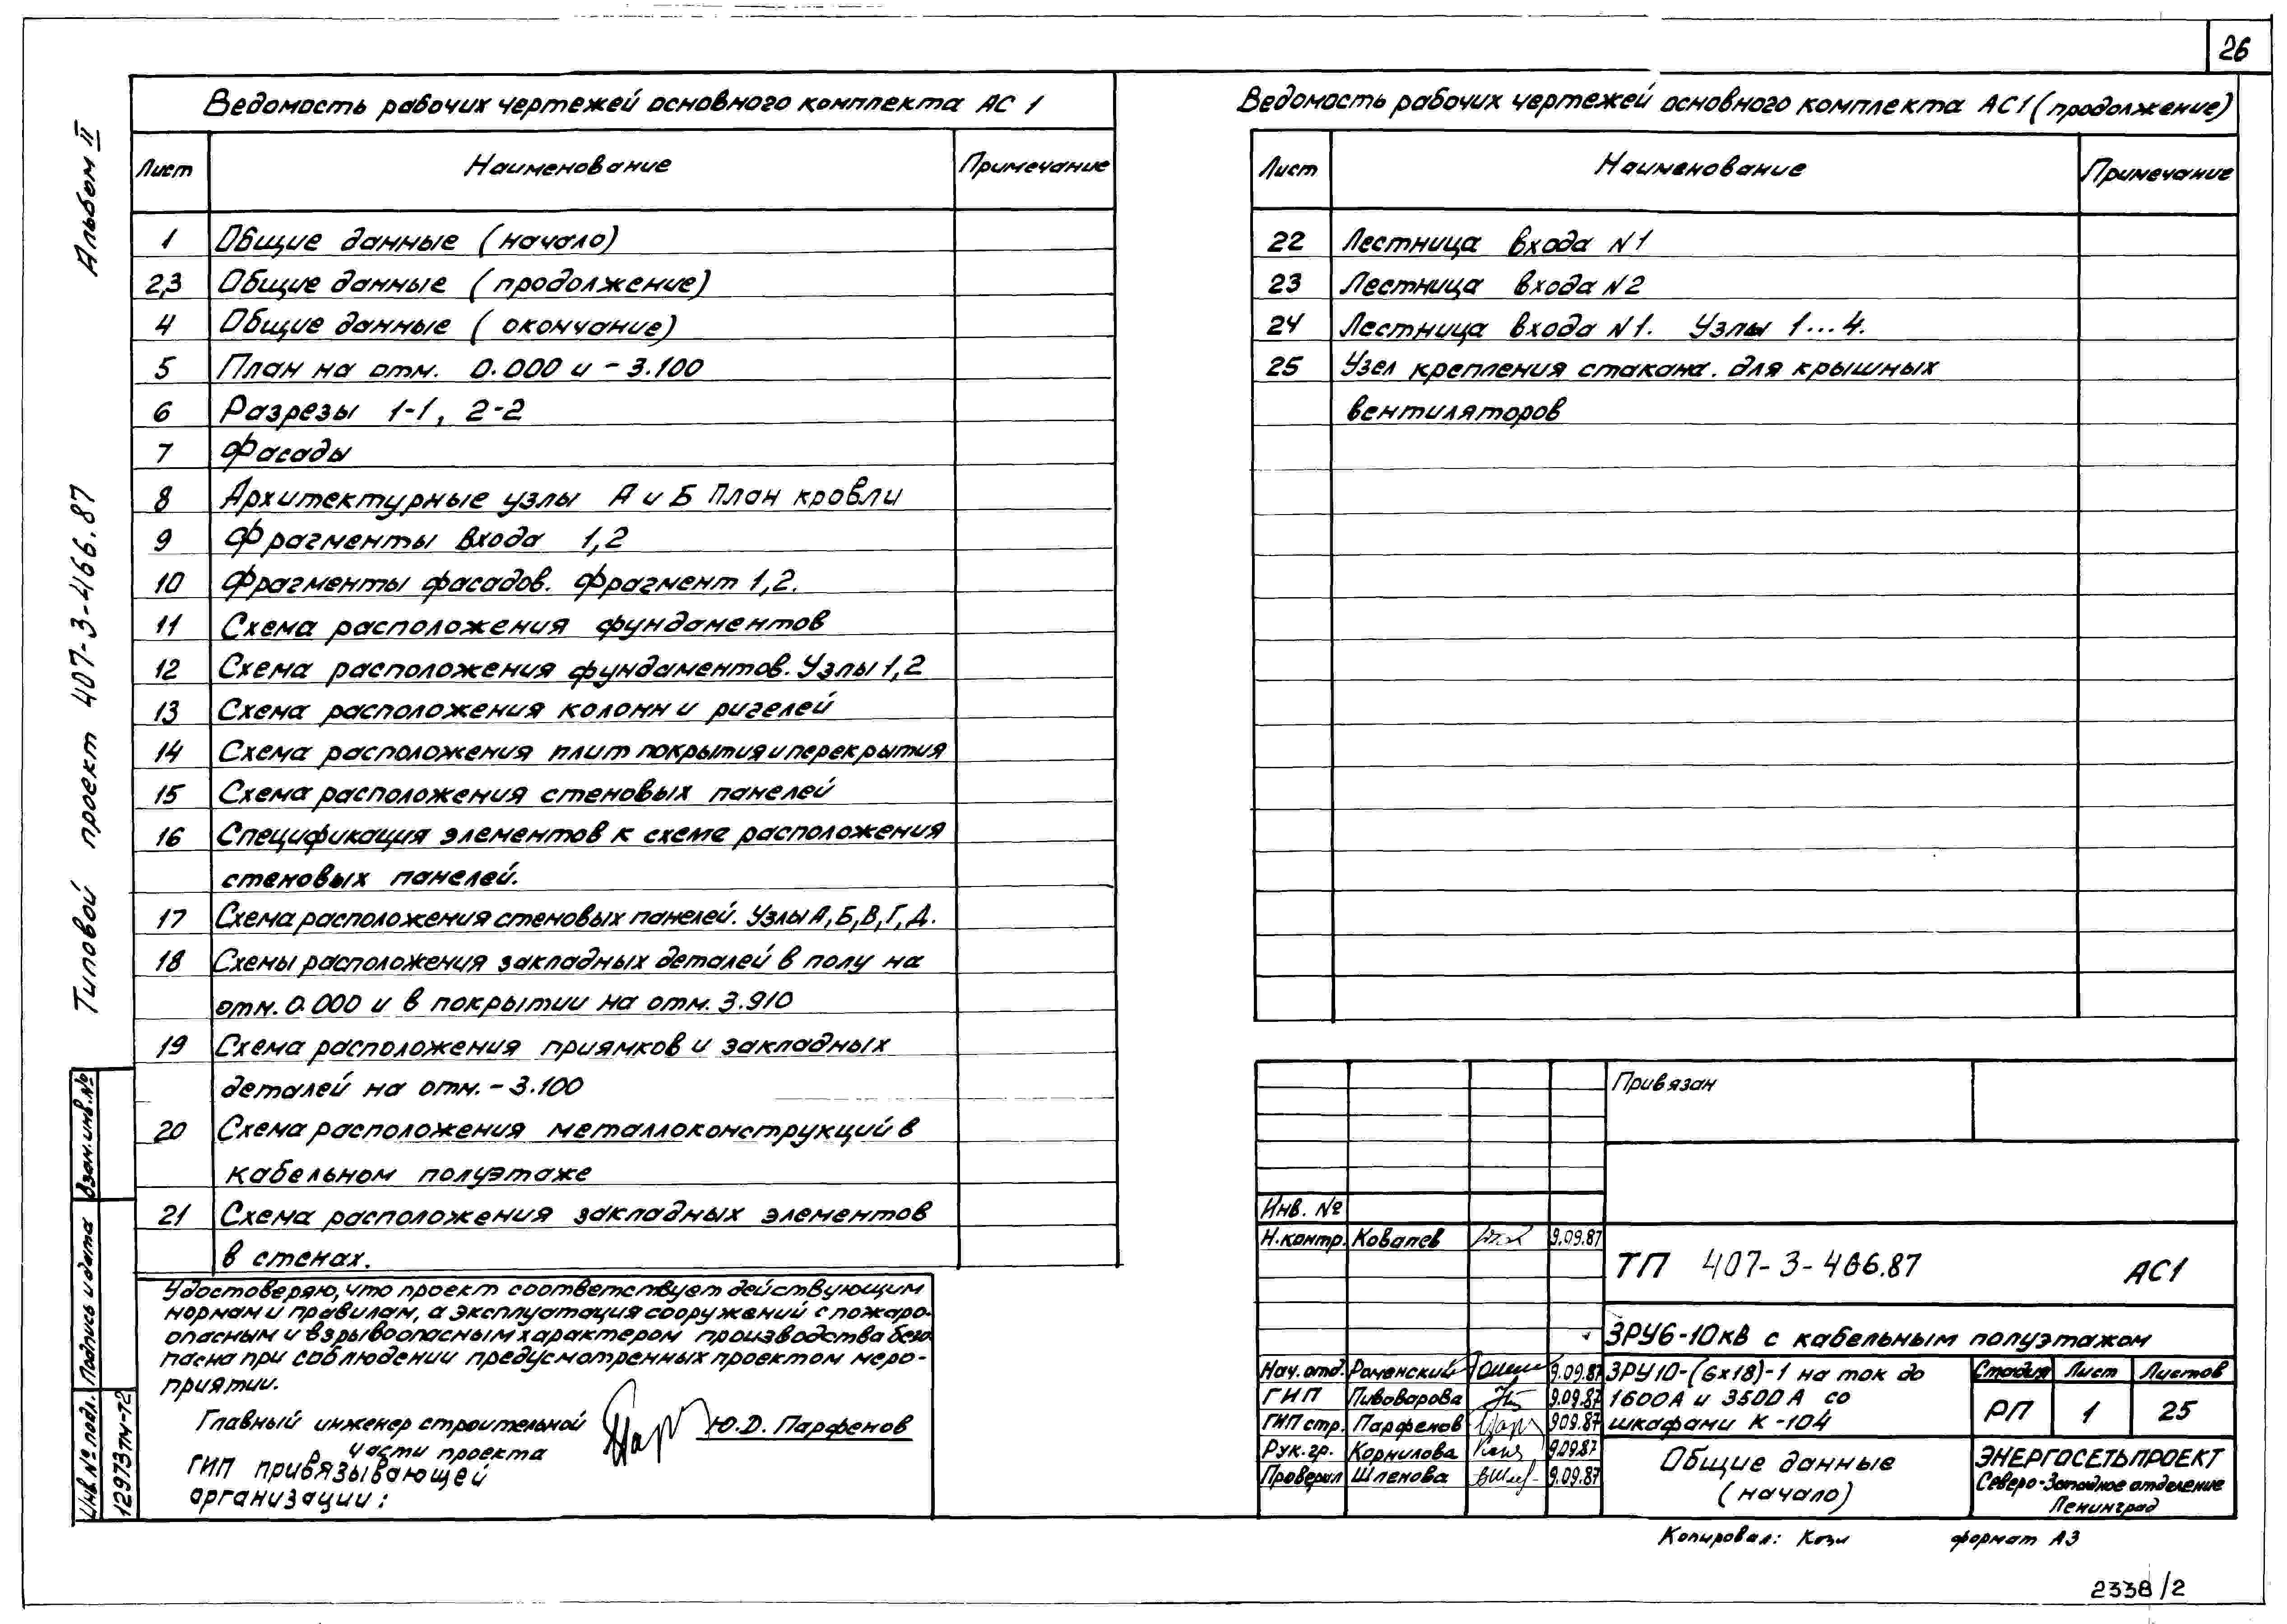 26
Альбом II
Типовой проект 407-3-466.87
Ведомость рабочих чертежей основного комплекта АС 1
Лист Наименование Примечание
1 Общие данные (начало)
2,3 Общие данные (продолжение)
4 Общие данные (окончание)
5 План на отм. 0.000 и -3.100
6 Разрезы 1-1, 2-2
7 Фасады
8 Архитектурные узлы А и Б План кровли
9 Фрагменты входа 1,2
10 Фрагменты фасадов. Фрагмент 1,2.
11 Схема расположения фундаментов
12 Схема расположения фундаментов. Узлы 1,2
13 Схема расположения колонн и ригелей
14 Схема расположения плит покрытия и перекрытия
15 Схема расположения стеновых панелей
16 Спецификация элементов к схеме расположения
стеновых панелей.
17 Схема расположения стеновых панелей. Узлы А,Б,В,Г,Д.
18 Схемы расположения закладных деталей в полу на
отм. 0.000 и в покрытии на отм. 3.910
19 Схема расположения приямков и закладных
деталей на отм. -3.100
20 Схема расположения металлоконструкций в
кабельном полуэтаже
21 Схема расположения закладных элементов
в стенах.
Удостоверяю, что проект соответствует действующим
нормам и правилам, а эксплуатация сооружений с пожаро-
опасным и взрывоопасным характером производства безо
пасна при соблюдении предусмотренных проектом меро-
приятии.
Главный инженер строительной
части проекта
Ю.Д. Парфенов
ГИП привязывающей
организации:
Взам.инв.№
Подпись и дата
Инв.№ подл.
12973тм-т2
Ведомость рабочих чертежей основного комплекта АС1 (продолжение)
Лист Наименование Примечание
22 Лестница входа N1
23 Лестница входа N2
24 Лестница входа N1. Узлы 1...4.
25 Узел крепления стакана. для крышных
вентиляторов
Привязан
Инв. №
Н.контр. Ковалев 9.09.87
ТП 407-3-466.87 АС1
ЗРУ6-10кВ с кабельным полуэтажом
Нач.отд. Роменский 9.09.87
ГИП Пивоварова 9.09.87
ГИП стр. Парфенов 909.87
Рук.гр. Корнилова 9.09.87
Проверил Шленова 9.09.87
ЗРУ10-(6х18)-1 на ток до
1600А и 3500А со
шкафами К-104
Стадия Лист Листов
РП 1 25
Общие данные
(начало)
ЭНЕРГОСЕТЬПРОЕКТ
Северо-Западное отделение
Ленинград
Копировал: Кози формат А3
2338/2